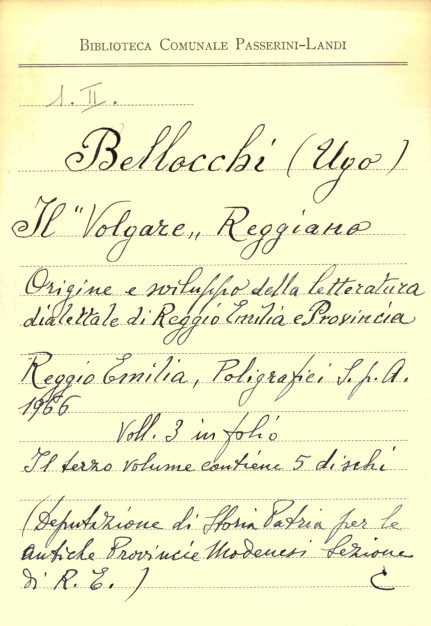 BIBLIOTECA COMUNALE PASSERINI-LANDI
1. II.
Bellocchi (Ugo)
Il "Volgare„ Reggiano
Origine e sviluppo della letteratura
dialettale di Reggio Emilia e Provincia
Reggio Emilia, Poligrafici S.p.A.
1966
Voll. 3 in folio
Il terzo volume contiene 5 dischi
(Deputazione di Storia Patria per le
antiche Provincie Modenesi Sezione
di R. E.) C